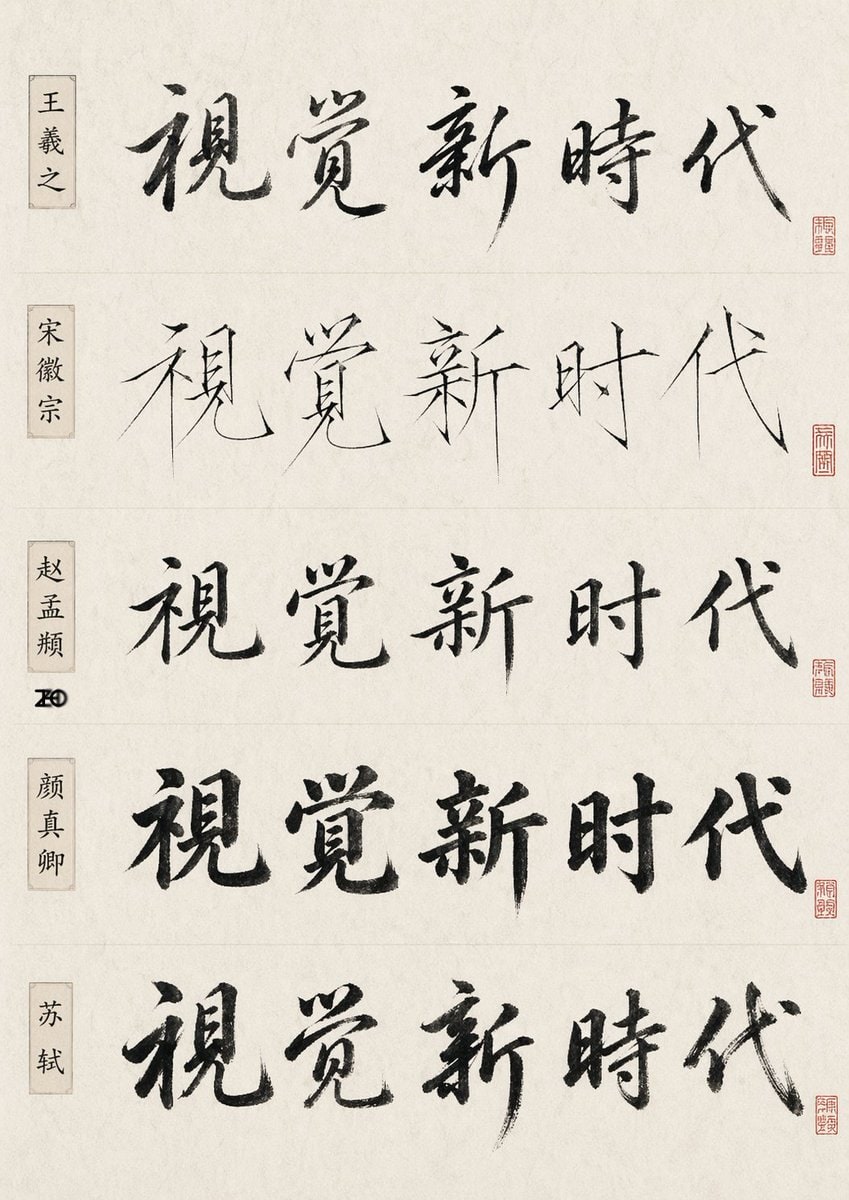 王羲之
視覚新時代
宋徽宗
視覺新时代
赵孟頫
視覚新时代
颜真卿
視覚新时代
苏轼
視觉新時代